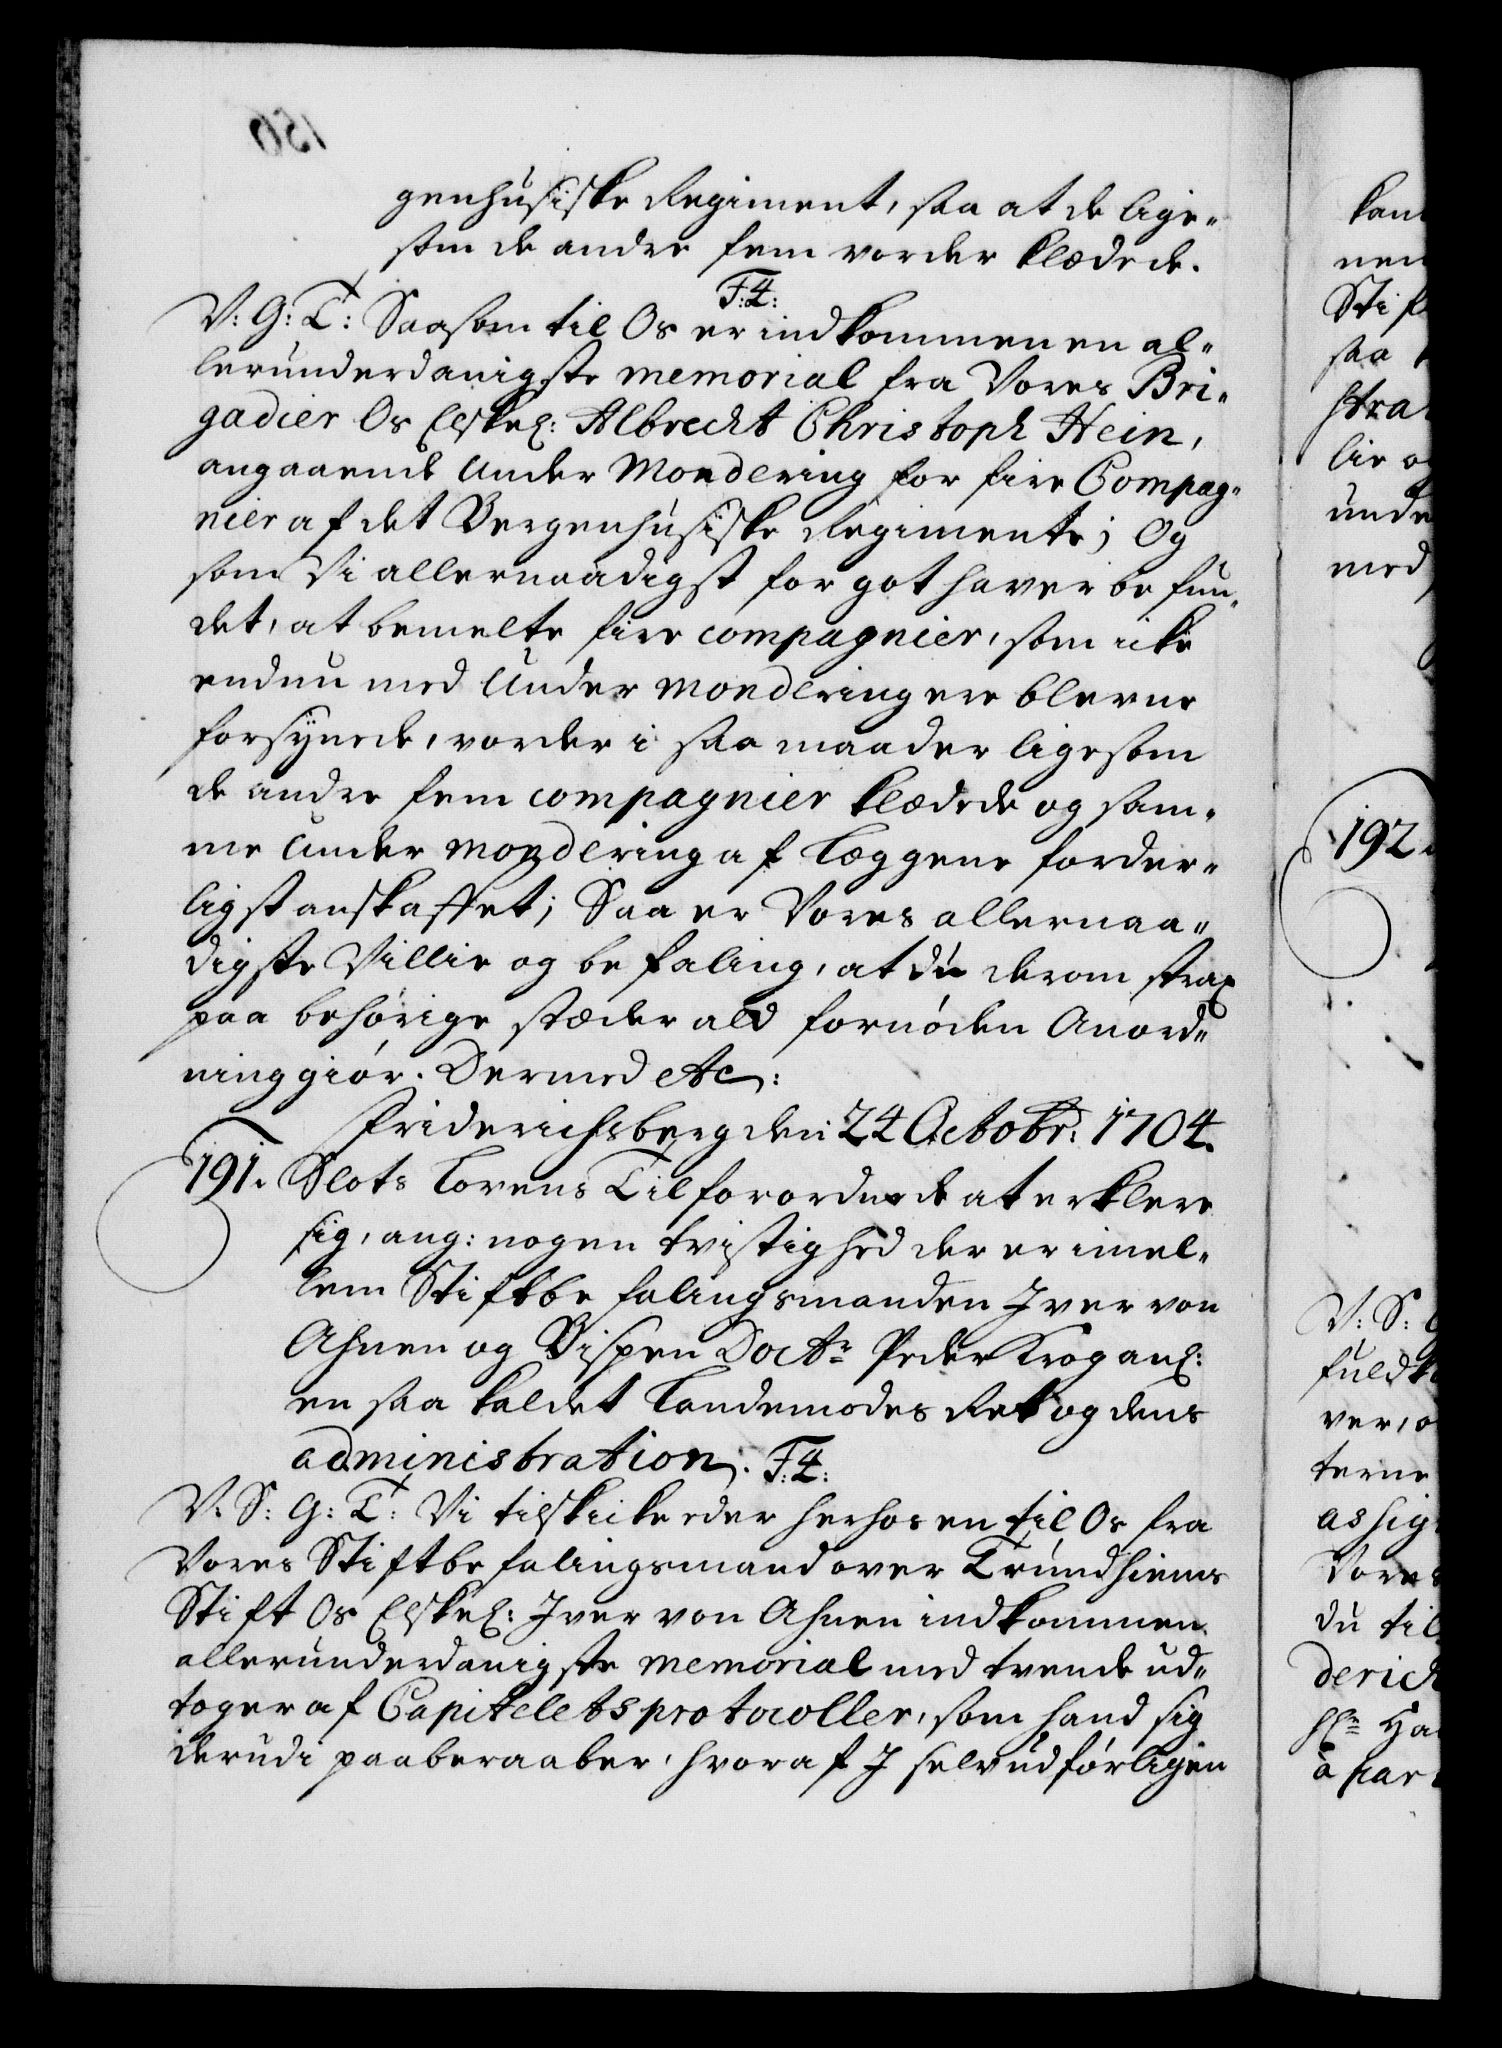 genhusiske Regiment, saa at de lige-
som de andre fem vorder klædede.
F: 4:
V: G: T: Saasom til Os er indkommen en al-
lerunderdanigste memorial fra Vores Bri-
gadier Os Elskel: Albrecht Christoph Hein,
angaaende Under Mondering for fire Compag-
nier af det Bergenhusiske Regimente; Og
som Vi allernaadigst for got haver befun-
det, at bemelte fire compagnier, som icke
endnu med Under mondering ere blevne
forsÿnede, vorder i saa maader ligesom
de andre fem compagnier klædede og sam-
me Under mondering af Læggene forder-
ligst anskaffet; Saa er Vores allernaa-
digste Villie og befaling, at du derom strax
paa behörige stæder ald fornöden Anord-
ning giör. Dermed etc:
Friderichsberg den 24 Octobr: 1704.
191. Slots Lovens Tilforordnede at erklere
sig, ang: nogen tvistighed der er imel-
lem Stiftbefalingsmanden Iver von
Ahnen og Bispen Doctr Peder Krog anl:
en saa kaldet Landemodes Ret og dens
administration. F: 4:
V: S: G: T: Vi tilskicker eder herhos en til Os fra
Vores Stiftbefalingsmand over Trundhiems
Stift Os Elskel: Iver von Ahnen indkommen
allerunderdanigste memorial med tvende ud-
toger af Capitelets protocoller, som hand sig
derudi paaberaaber, hvoraf I selv udförligen
kan
nem
Stif
saa
stra
lie o
unde
med
192.
V: S:
fuldk
ver, o
terne
assig
Vores
du til
derich
Ha
à par